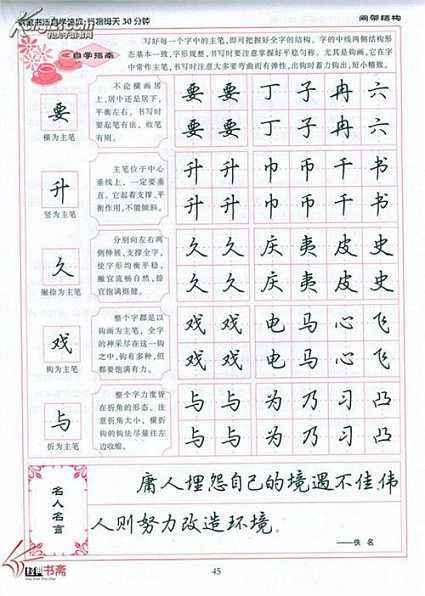 行楷每天30分钟
间架结构
自学指南
写好每一个字中的主笔,即可把握好全字的结构。字的中线两侧结构形
态基本一致,字形规整,书写时要注意掌握好平稳匀称。尤其是钩画,它在字
中常作主笔,书写时注意大多要弯曲而有弹性,出钩时蓄力钩出,短小精致。
要
横为主笔
不论横画居
上、居中还是居下,
平衡左右。书写时
要起笔有法,收笔
有则。
要 要 丁 子 冉 六
要 要 丁 子 冉 六
升
竖为主笔
主笔位于中心
垂线上,一定要垂
直。它起着支撑、平
衡作用,不能倾斜。
升 升 巾 币 千 书
升 升 巾 币 千 书
久
撇捺为主笔
分别向左右两
侧伸展,支撑全字,
使字形均衡平稳。
撇宜流畅自然,捺
宜饱满挺健。
久 久 庆 夷 皮 史
久 久 庆 夷 皮 史
戏
钩为主笔
整个字都是以
钩画为主笔,全字
的神采尽在这一钩
之中,钩有多种,但
都要饱满有力。
戏 戏 电 马 心 飞
戏 戏 电 马 心 飞
与
折为主笔
整个字力度皆
在折角的形态。注
意折角大小、横折
钩的钩法尽量往左
边收缩。
与 与 为 乃 习 凸
与 与 为 乃 习 凸
名人名言
庸人埋怨自己的境遇不佳,伟
人则努力改造环境。
——佚 名
书斋
45